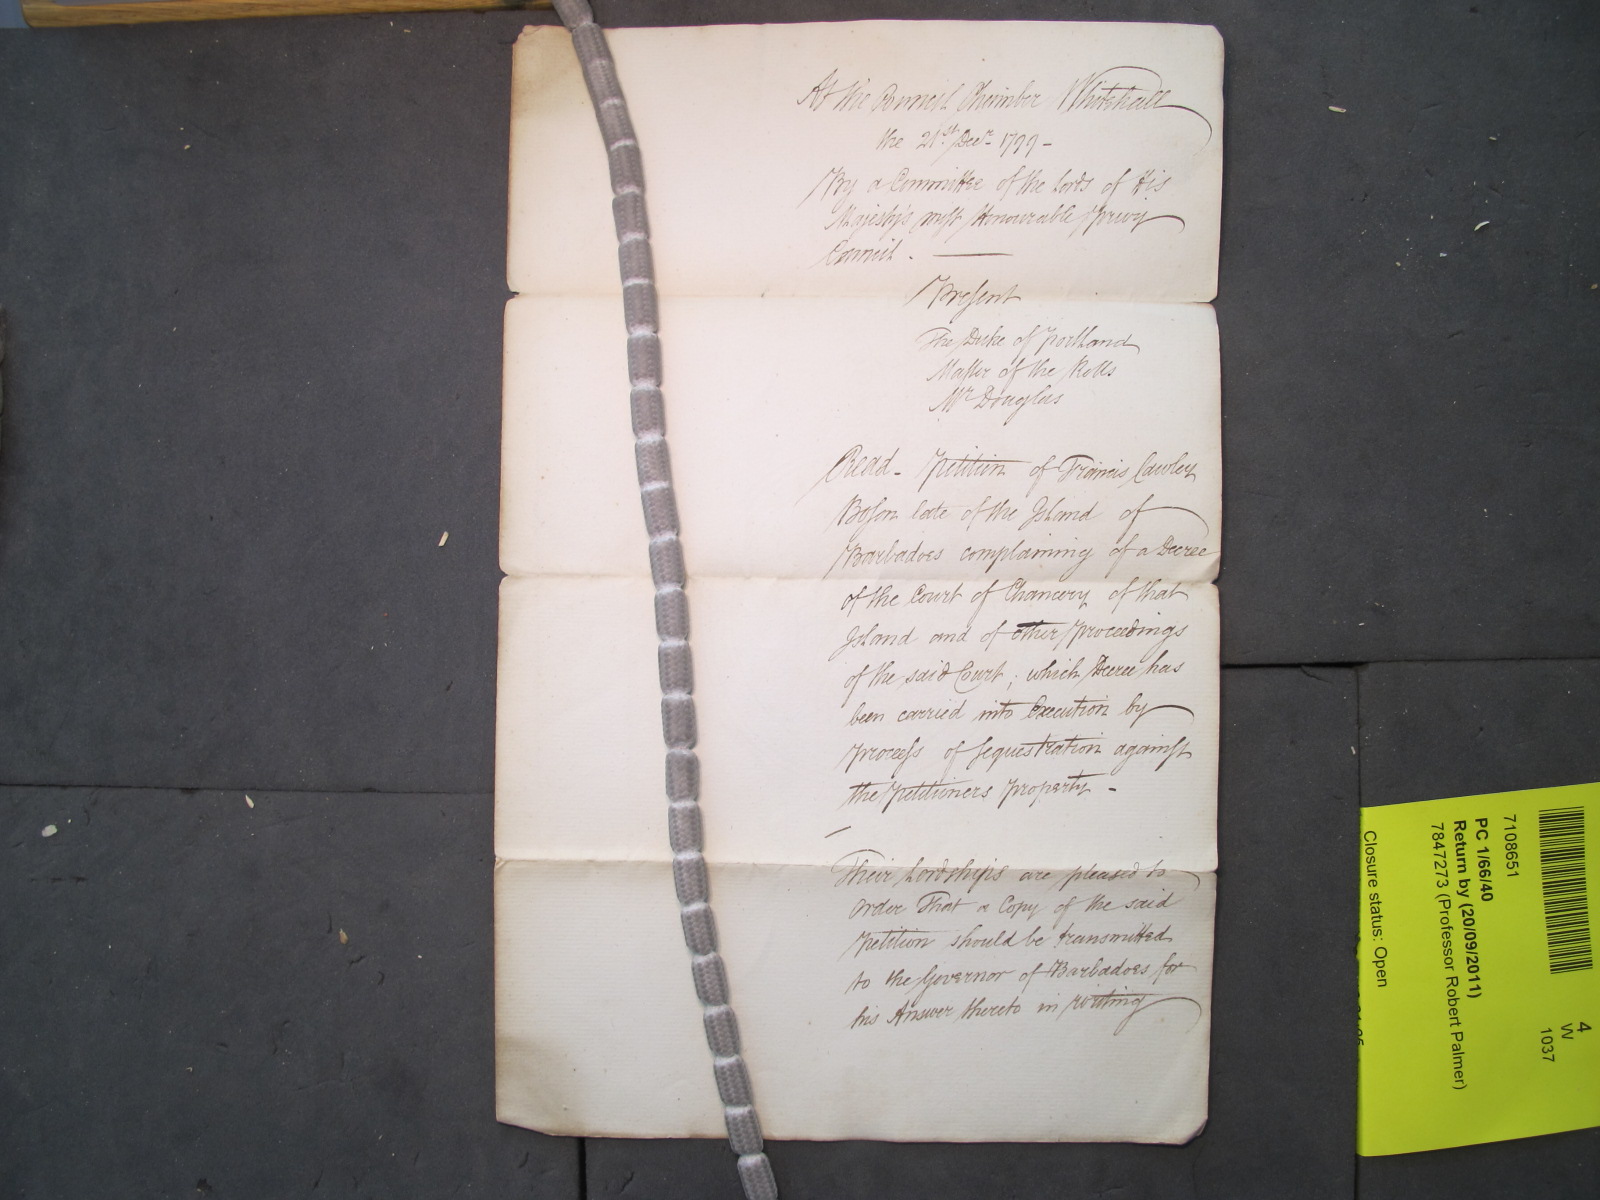 At the Council Chamber Whitehall
the 21st Decr 1799 -
By a Committee of the Lords of His
Majesty's most Honourable Privy
Council. —
Present
The Duke of Portland
Master of the Rolls
Mr Douglas
Read - Petition of Francis Cawley
late of the Island of
Barbadoes complaining of a Decree
of the Court of Chancery of that
Island and of other Proceedings
of the said Court; which Decree has
been carried into Execution by
Process of Sequestration against
the Petitioners Property -
Their Lordships are pleased to
Order That a Copy of the said
Petition should be transmitted
to the Governor of Barbadoes for
his Answer thereto in writing
7108651
PC 1/66/40
Return by (20/09/2011)
7847273 (Professor Robert Palmer)
Closure status: Open
4
W
1037